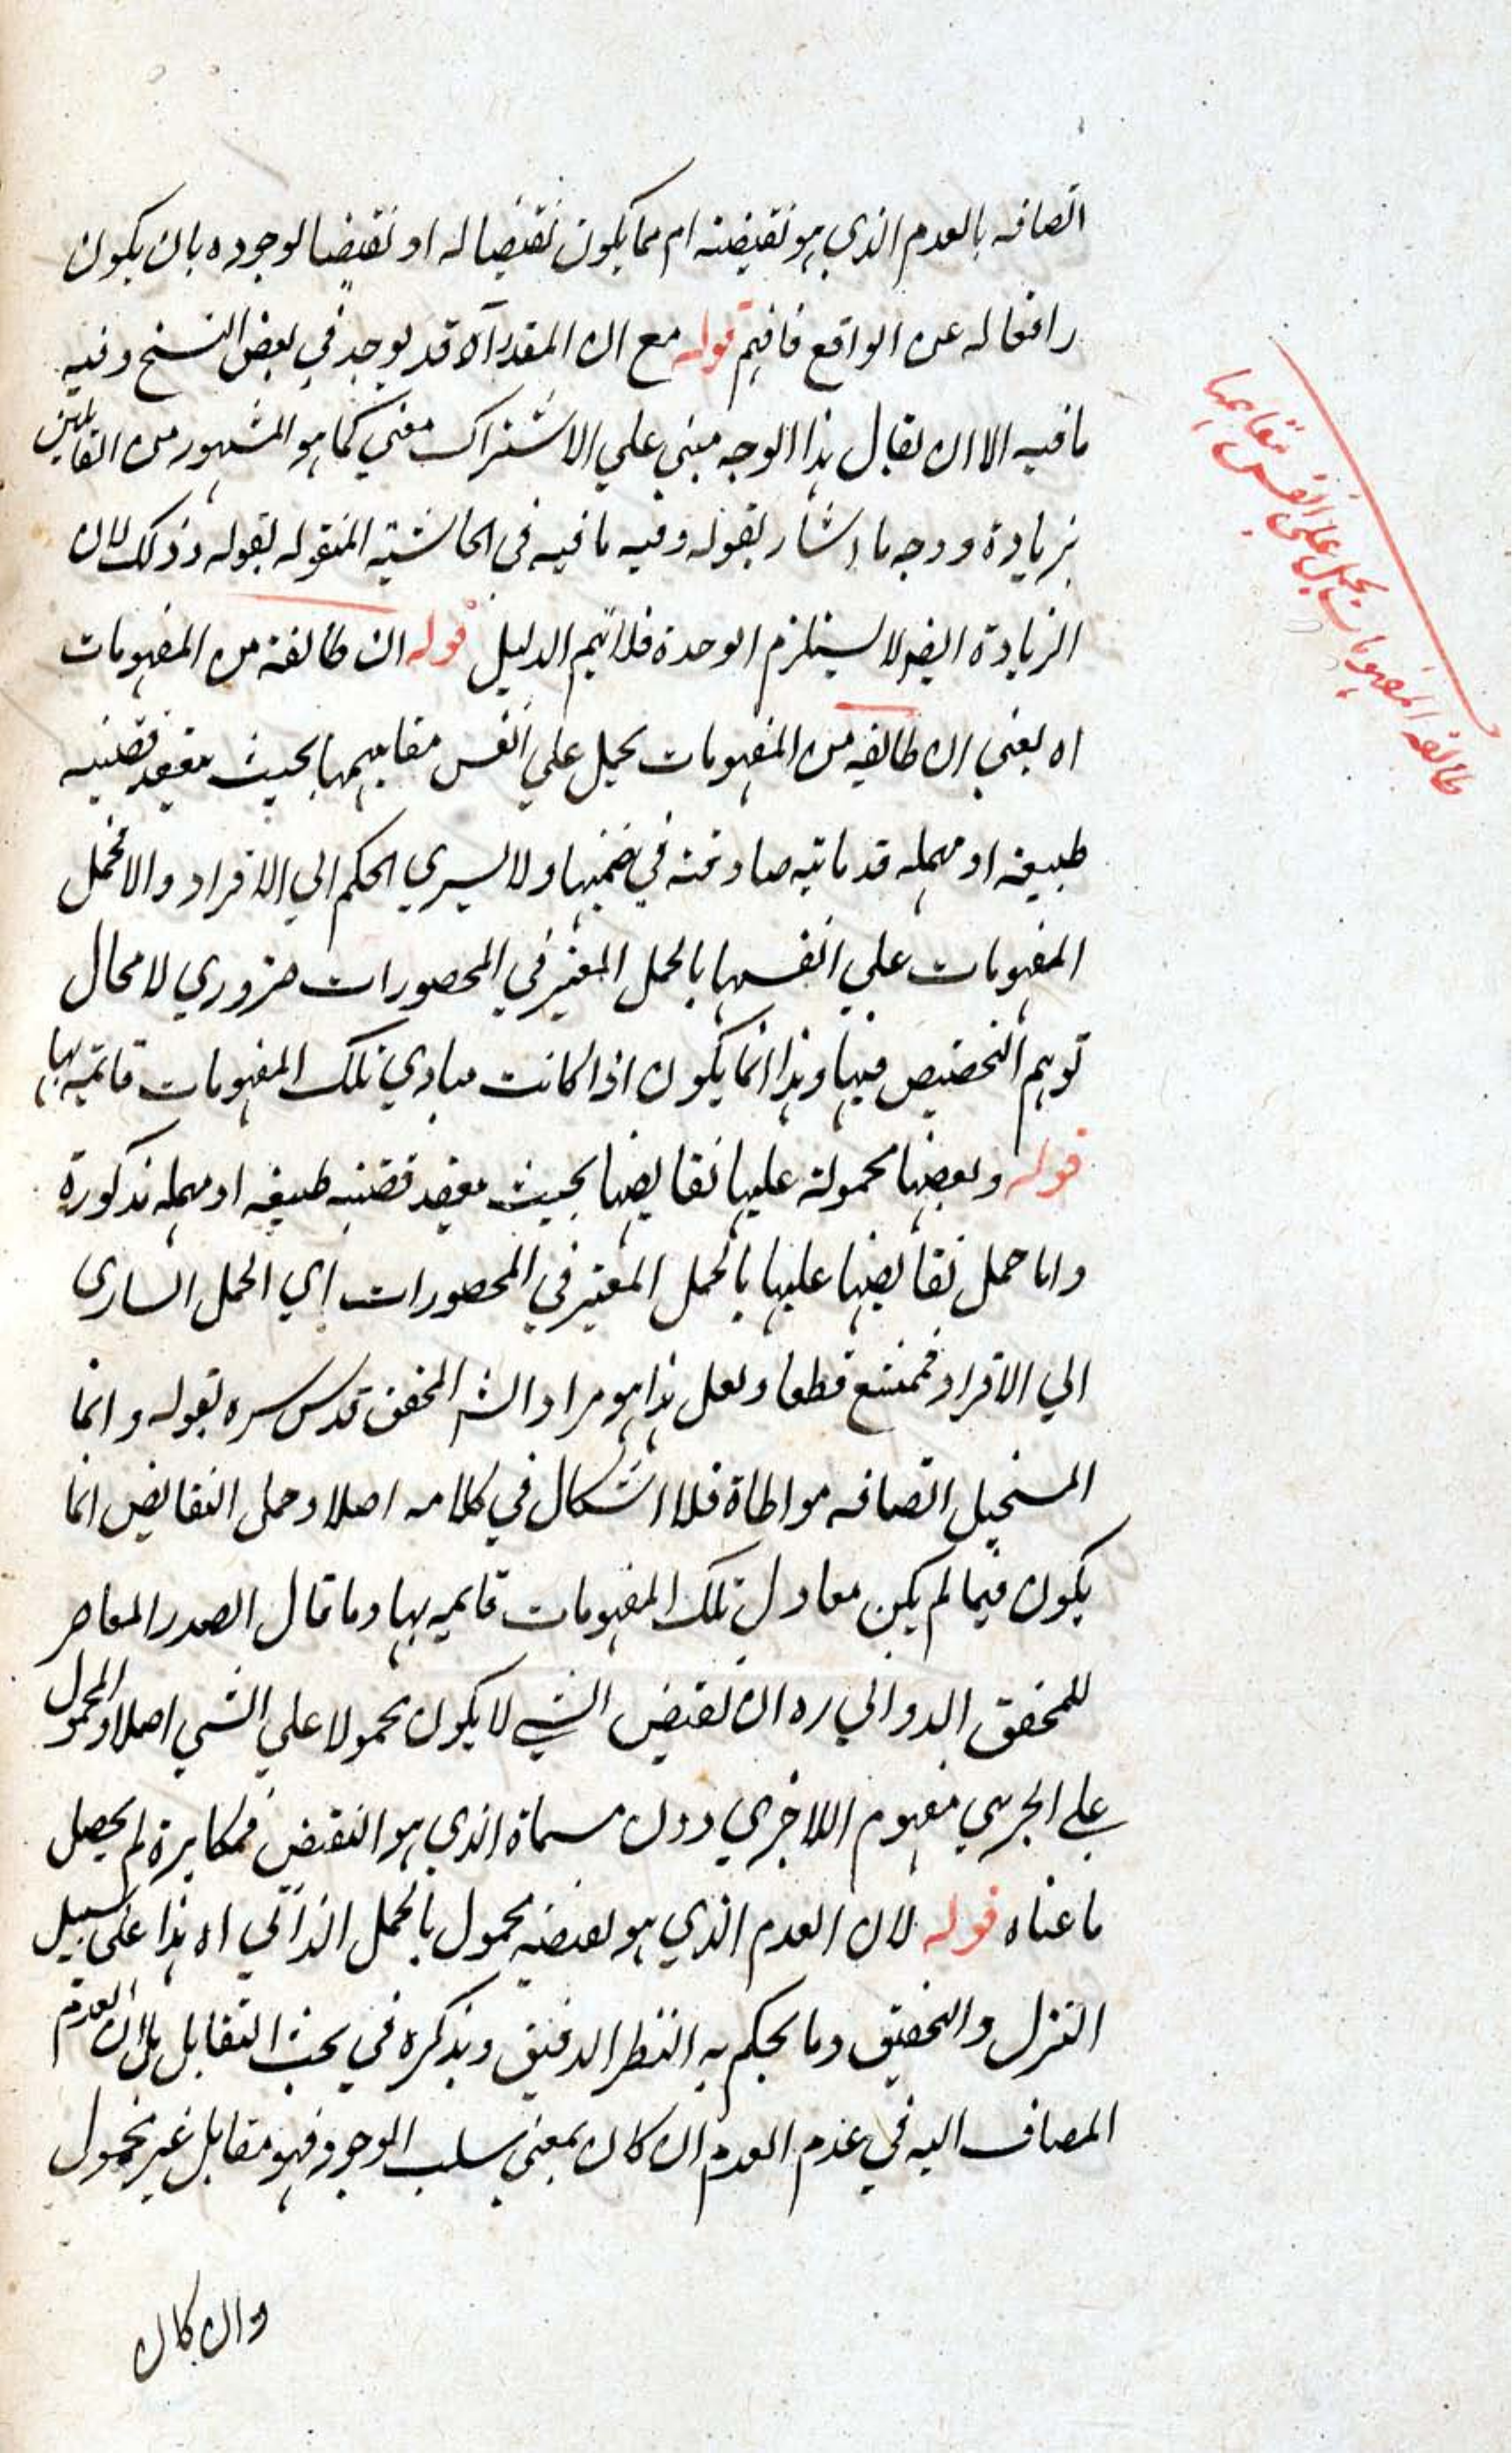 اتصافه بالعدم الذي هو نقيضه ام مما يكون نقيضا له او نقيضا لوجوده بان يكون
رافعا له عن الواقع فافهم قوله مع ان المقدر آه قد يوجد في بعض النسخ وفيه
ما فيه الا ان يقال هذا الوجه مبني علي الاشتراك معني كما هو المشهور من القائلين
بزيادة ووجه ما اشار بقوله وفيه ما فيه في الحاشية المنقوله بقوله وذلك لان
الزيادة ايضا لا يستلزم الوحدة فلا يتم الدليل قوله ان طائفة من المفهومات
اه يعني ان طائفه من المفهومات يحمل علي انفس مفاهيمها بحيث ينعقد قضيه
طبيعة او مهمله قدمائيه صادقة في ضمنها ولا يسري الحكم الي الافراد والا فحمل
المفهومات علي انفسها بالحمل المعتبر في المحصورات ضروري لا محال
توهم التخصيص فيها وهذا انما يكون اذا كانت مبادي تلك المفهومات قائمة بها
قوله وبعضها محمولة عليها نقايضها بحيث ينعقد قضيه طبيعه او مهمله مذكورة
واما حمل نقايضها عليها بالحمل المعتبر في المحصورات اي الحمل الساري
الي الافراد فممتنع قطعا ولعل هذا هو مراد الش المحقق قدس سره بقوله وانما
المستحيل اتصافه مواطاة فلا اشكال في كلامه اصلا وحمل النقايض انما
يكون فيما لم يكن معادل تلك المفهومات قائمه بها وما قال الصدر المعاصر
للمحقق الدواني ره ان نقيض الشي لا يكون محمولا علي الشي اصلا والمحمول
علے الجزئي مفهوم اللاجزئي دون مسماة الذي هو النقيض فمكابرة لم يحصل
ما عناه قوله لان العدم الذي هو نقيضه محمول بالحمل الذاتي اه هذا على سبيل
التنزل والتحقيق وما يحكم به النظر الدقيق ويذكره في بحث التقابل بل ان العدم
المضاف اليه في عدم العدم ان كان بمعني سلب الوجود فهو مقابل غير محمول
وان كان
طائفه المفهومات يحمل علي انفس مفاهيمها